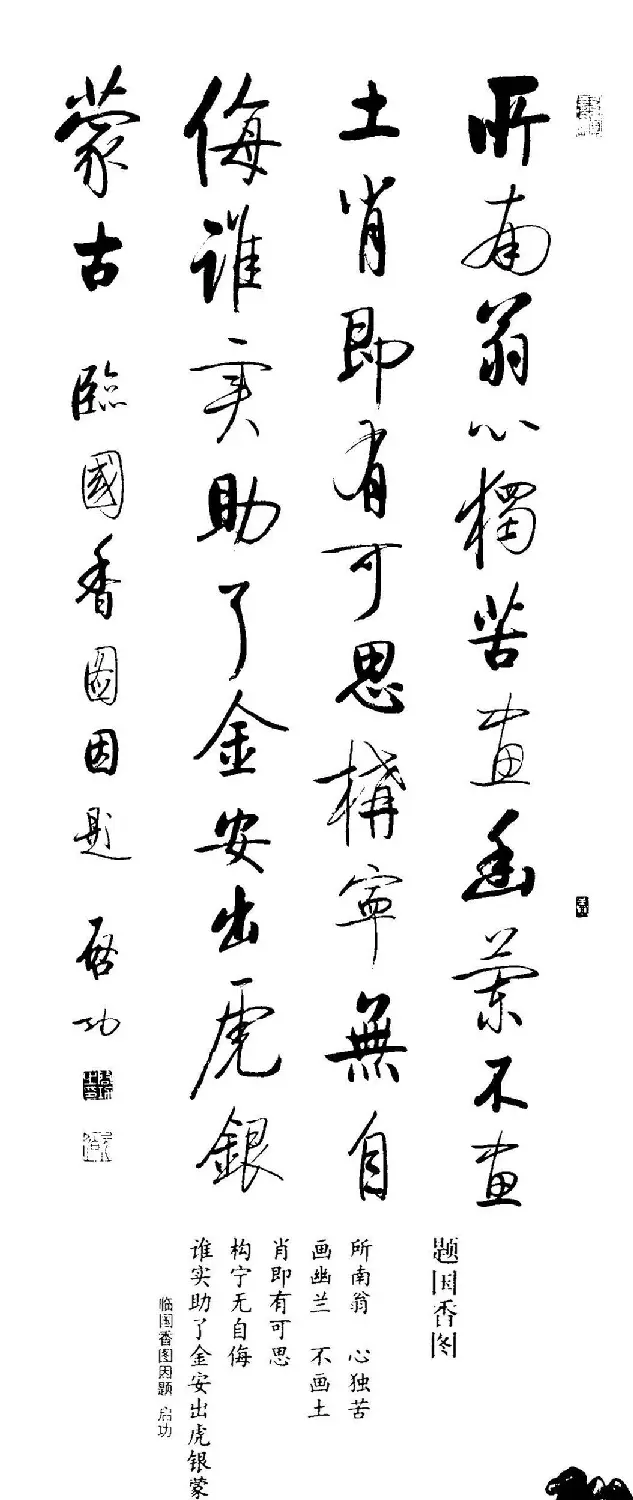 所南翁心獨苦畫幽蘭不畫
土肖即有可思構寧無自
侮誰实助了金安出虎銀
蒙古 臨國香圖因題 启功
题国香图
所南翁 心独苦
画幽兰 不画土
肖即有可思
构宁无自侮
谁实助了金安出虎银蒙
临国香图因题 启功